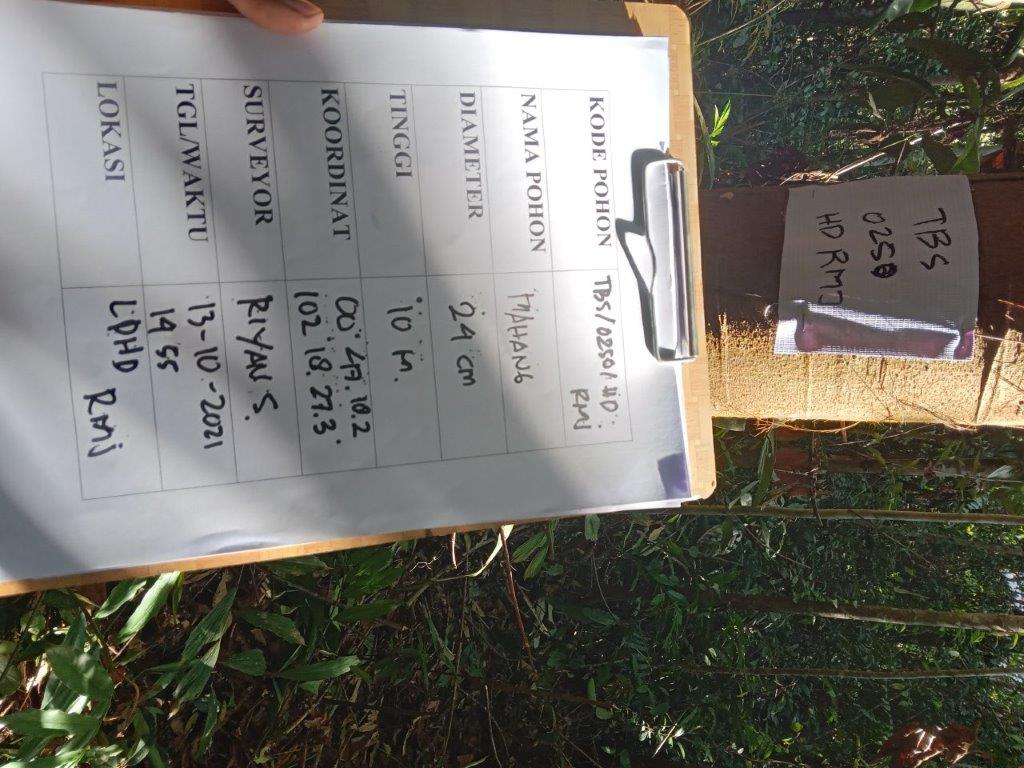 TBS
0250
HD RMJ
KODE POHON TBS/0250/HD.
RMJ
NAMA POHON MAHANG
DIAMETER 24 cm
TINGGI 10 m.
KOORDINAT 00° 47' 10.2
102° 18' 27.3"
SURVEYOR RIYAN S.
TGL/WAKTU 13-10-2021
14 55
LOKASI LDHD RMJ